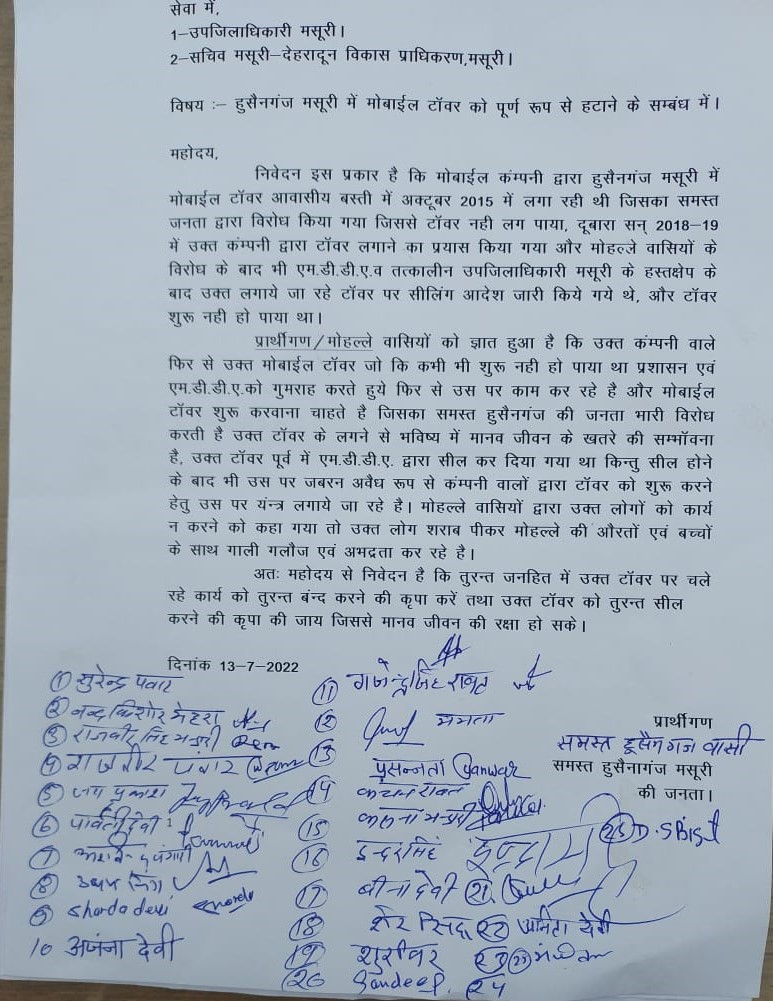 सेवा में,
1–उपजिलाधिकारी मसूरी।
2–सचिव मसूरी–देहरादून विकास प्राधिकरण,मसूरी।
विषय :– हुसैनगंज मसूरी में मोबाईल टॉवर को पूर्ण रूप से हटाने के सम्बंध में।
महोदय,
निवेदन इस प्रकार है कि मोबाईल कंम्पनी द्वारा हुसैनगंज मसूरी में
मोबाईल टॉवर आवासीय बस्ती में अक्टूबर 2015 में लगा रही थी जिसका समस्त
जनता द्वारा विरोध किया गया जिससे टॉवर नही लग पाया, दूबारा सन् 2018–19
में उक्त कंम्पनी द्वारा टॉवर लगाने का प्रयास किया गया और मोहल्ले वासियों के
विरोध के बाद भी एम.डी.डी.ए.व तत्कालीन उपजिलाधिकारी मसूरी के हस्तक्षेप के
बाद उक्त लगाये जा रहे टॉवर पर सीलिंग आदेश जारी किये गये थे, और टॉवर
शुरू नही हो पाया था।
प्रार्थीगण/मोहल्ले वासियों को ज्ञात हुआ है कि उक्त कंम्पनी वाले
फिर से उक्त मोबाईल टॉवर जो कि कभी भी शुरू नही हो पाया था प्रशासन एवं
एम.डी.डी.ए.को गुमराह करते हुये फिर से उस पर काम कर रहे है और मोबाईल
टॉवर शुरू करवाना चाहते है जिसका समस्त हुसैनगंज की जनता भारी विरोध
करती है उक्त टॉवर के लगने से भविष्य में मानव जीवन के खतरे की सम्भॉवना
है, उक्त टॉवर पूर्व में एम.डी.डी.ए. द्वारा सील कर दिया गया था किन्तु सील होने
के बाद भी उस पर जबरन अवैध रूप से कंम्पनी वालों द्वारा टॉवर को शुरू करने
हेतु उस पर यंन्त्र लगाये जा रहे है। मोहल्ले वासियों द्वारा उक्त लोगों को कार्य
न करने को कहा गया तो उक्त लोग शराब पीकर मोहल्ले की औरतों एवं बच्चों
के साथ गाली गलौज एवं अभद्रता कर रहे है।
अतः महोदय से निवेदन है कि तुरन्त जनहित में उक्त टॉवर पर चले
रहे कार्य को तुरन्त बंन्द करने की कृपा करें तथा उक्त टॉवर को तुरन्त सील
करने की कृपा की जाय जिससे मानव जीवन की रक्षा हो सके।
दिनांक 13–7–2022
① सुरेन्द्र पवार
② नन्दकिशोर मेहरा
③ राजवीर सिंह
④ राजवीर पवार
⑤ जय प्रकाश
⑥ पार्वती देवी
⑦
⑧
⑨ Sharda devi
10 अंजना देवी
⑪ गजेन्द्र सिंह रावत
⑫ ममता
⑬ प्रसन्नता Panwar
⑭ कंचन रावत
⑮
⑯ इन्दर सिंह
⑰ बीना देवी ㉑
⑱ शेर सिंह ㉒ अमिता देवी
⑲ शूरवीर ㉓
⑳ Sandeep ㉔
प्रार्थीगण
समस्त हूसैनगंज वासी
समस्त हुसैनागंज मसूरी
की जनता।
㉕ D.S Bist